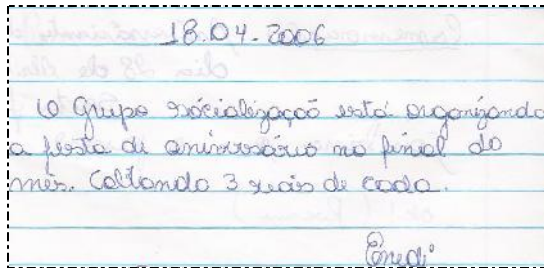 18.04.2006
O Grupo sócialização está organizando
a festa de aniversário no finial do
mês. Coltando 3 reais de cada.
Enedi